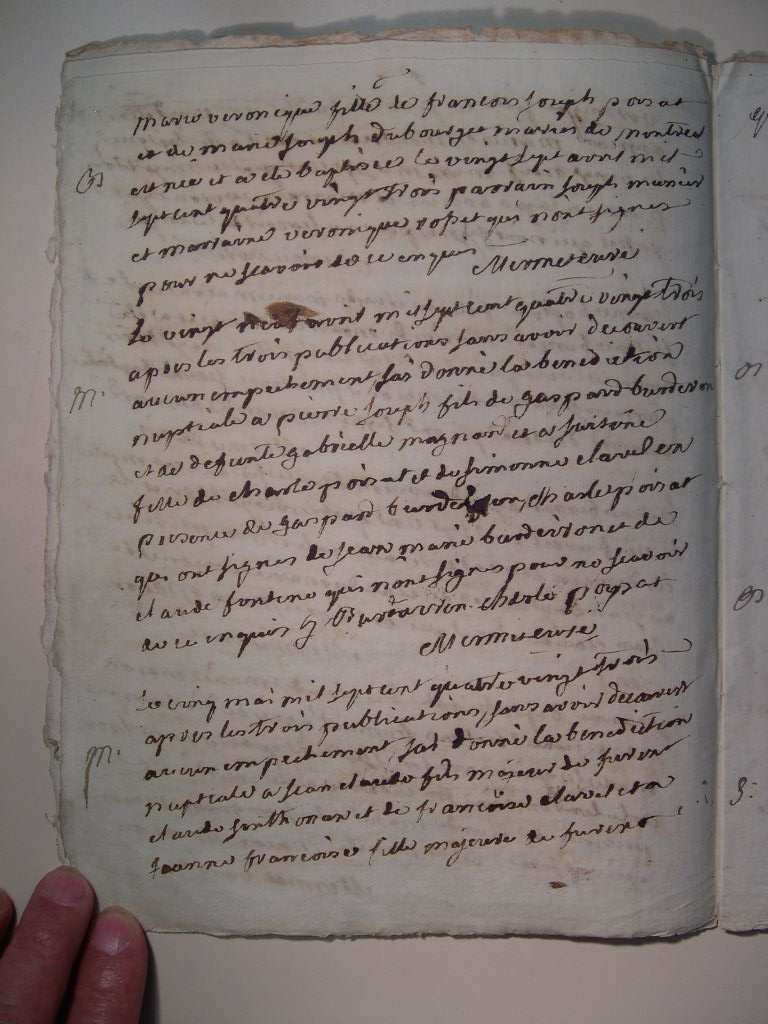 marie veronique fille de francois Joseph poisat
et de marie Joseph dubourget mariés de
B est née et a été baptisée le vingt sept avril mil
sept cent quatre vingt trois parrain Joseph
et marraine veronique qui n'ont signés
pour ne scavoir de ce enquis Mermet curé
Le vingt neuf avril mil sept cent quatre vingt trois
apres les trois publications sans avoir decouvert
aucun empechement j'ai donné la benediction
m. nuptiale a pierre Joseph fils de gaspard burdeyron
et de defunte gabrielle magnard et a
fille de charle poisat et de simonne clavel en
presence de gaspard burdeyron, charle poisat
qui ont signes de jean marie burdeyron et de
claude fontene qui n'ont signes pour ne scavoir
de ce enquis charle poysat
Mermet curé
Le cinq mai mil sept cent quatre vingt trois
apres les trois publications, sans avoir decouvert
m. aucun empechement j'ai donné la benediction
nuptiale a jean claude fils majeur de furent
claude sonthonax et de françoise clavel et a
Jeanne françoise fille majeure de furent